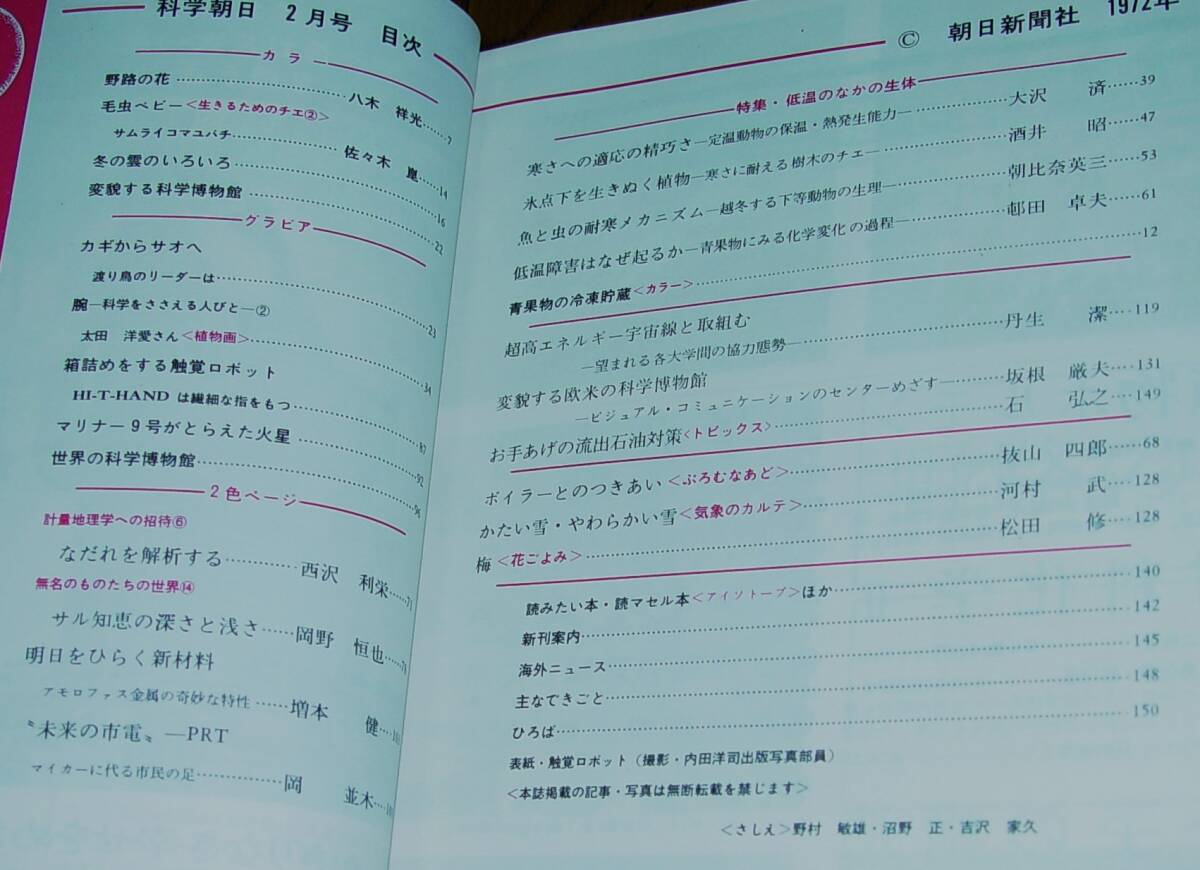 科学朝日 2月号 目次
カラー
野路の花 八木 祥光 7
毛虫ベビー<生きるためのチエ②>
サムライコマユバチ 佐々木 崑 14
冬の雲のいろいろ 16
変貌する科学博物館 22
グラビア
カギからサオへ
渡り鳥のリーダーは 23
腕―科学をささえる人びと―②
太田 洋愛さん<植物画> 34
箱詰めをする触覚ロボット
HI-T-HAND は繊細な指をもつ 87
マリナー9号がとらえた火星 92
世界の科学博物館 96
2色ページ
計量地理学への招待⑥
なだれを解析する 西沢 利栄 71
無名のものたちの世界⑭
サル知恵の深さと浅さ 岡野 恒也
明日をひらく新材料
アモロファス金属の奇妙な特性 増本 健
〝未来の市電〟―PRT
マイカーに代る市民の足 岡 並木
© 朝日新聞社 1972年
特集・低温のなかの生体
寒さへの適応の精巧さ―定温動物の保温・熱発生能力― 大沢 済 39
氷点下を生きぬく植物―寒さに耐える樹木のチエ― 酒井 昭 47
魚と虫の耐寒メカニズム―越冬する下等動物の生理― 朝比奈英三 53
低温障害はなぜ起るか―青果物にみる化学変化の過程― 邨田 卓夫 61
青果物の冷凍貯蔵<カラー> 12
超高エネルギー宇宙線と取組む
―望まれる各大学間の協力態勢― 丹生 潔 119
変貌する欧米の科学博物館
―ビジュアル・コミュニケーションのセンターめざす― 坂根 厳夫 131
お手あげの流出石油対策<トピックス> 石 弘之 149
ボイラーとのつきあい<ぷろむなあど> 抜山 四郎 68
かたい雪・やわらかい雪<気象のカルテ> 河村 武 128
梅<花ごよみ> 松田 修 128
読みたい本・読マセル本<アイソトープ>ほか 140
新刊案内 142
海外ニュース 145
主なできごと 148
ひろば 150
表紙・触覚ロボット（撮影・内田洋司出版写真部員）
<本誌掲載の記事・写真は無断転載を禁じます>
<さしえ>野村 敏雄・沼野 正・吉沢 家久